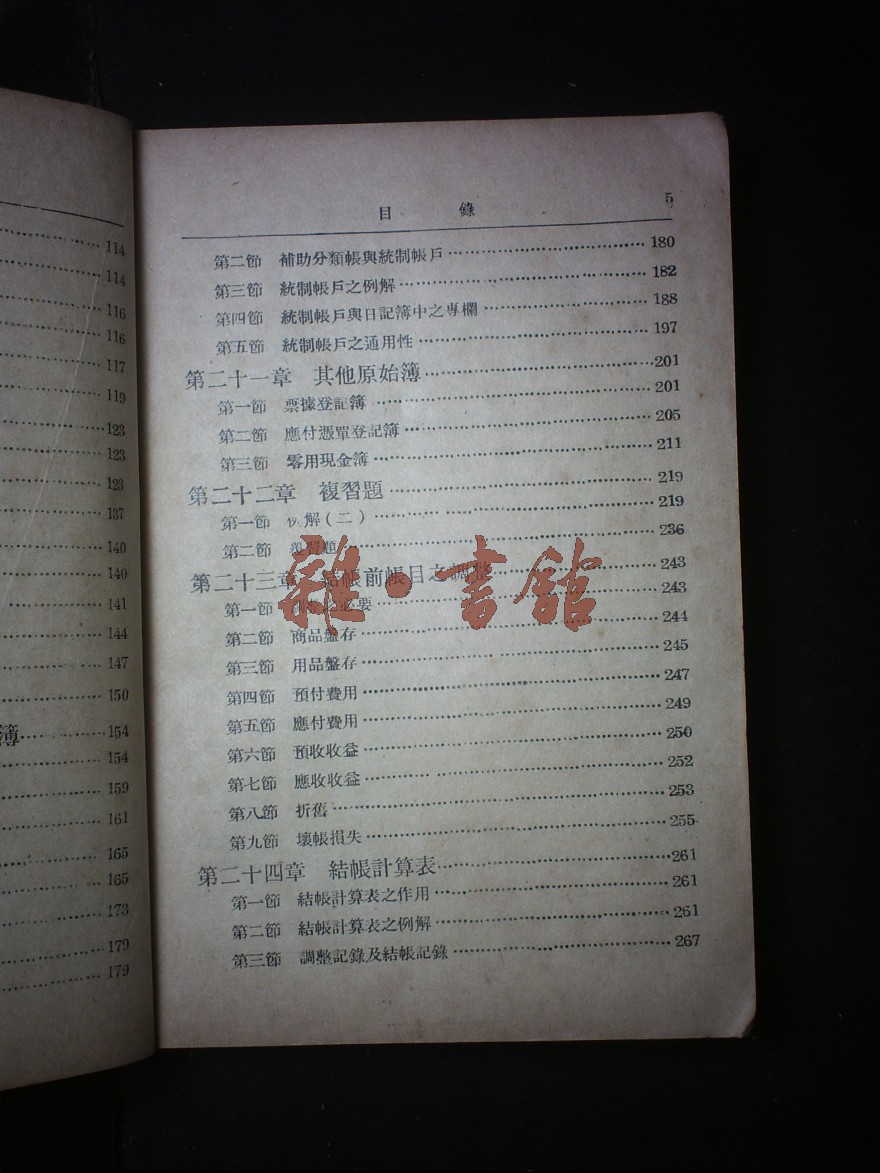 114
114
116
116
117
119
123
123
123
137
140
140
141
144
147
150
簿 154
154
159
161
165
165
173
179
179
目錄 5
第二節 補助分類帳與統制帳戶 180
第三節 統制帳戶之例解 182
第四節 統制帳戶與日記簿中之專欄 188
第五節 統制帳戶之通用性 197
第二十一章 其他原始簿 201
第一節 票據登記簿 201
第二節 應付憑單登記簿 205
第三節 零用現金簿 211
第二十二章 複習題 219
第一節 解(二) 219
第二節 習題 236
第二十三章 結帳前帳目之調整 243
第一節 之必要 243
第二節 商品盤存 244
第三節 用品盤存 245
第四節 預付費用 247
第五節 應付費用 249
第六節 預收收益 250
第七節 應收收益 252
第八節 折舊 253
第九節 壞帳損失 255
第二十四章 結帳計算表 261
第一節 結帳計算表之作用 261
第二節 結帳計算表之例解 261
第三節 調整記錄及結帳記錄 267
雜·書館